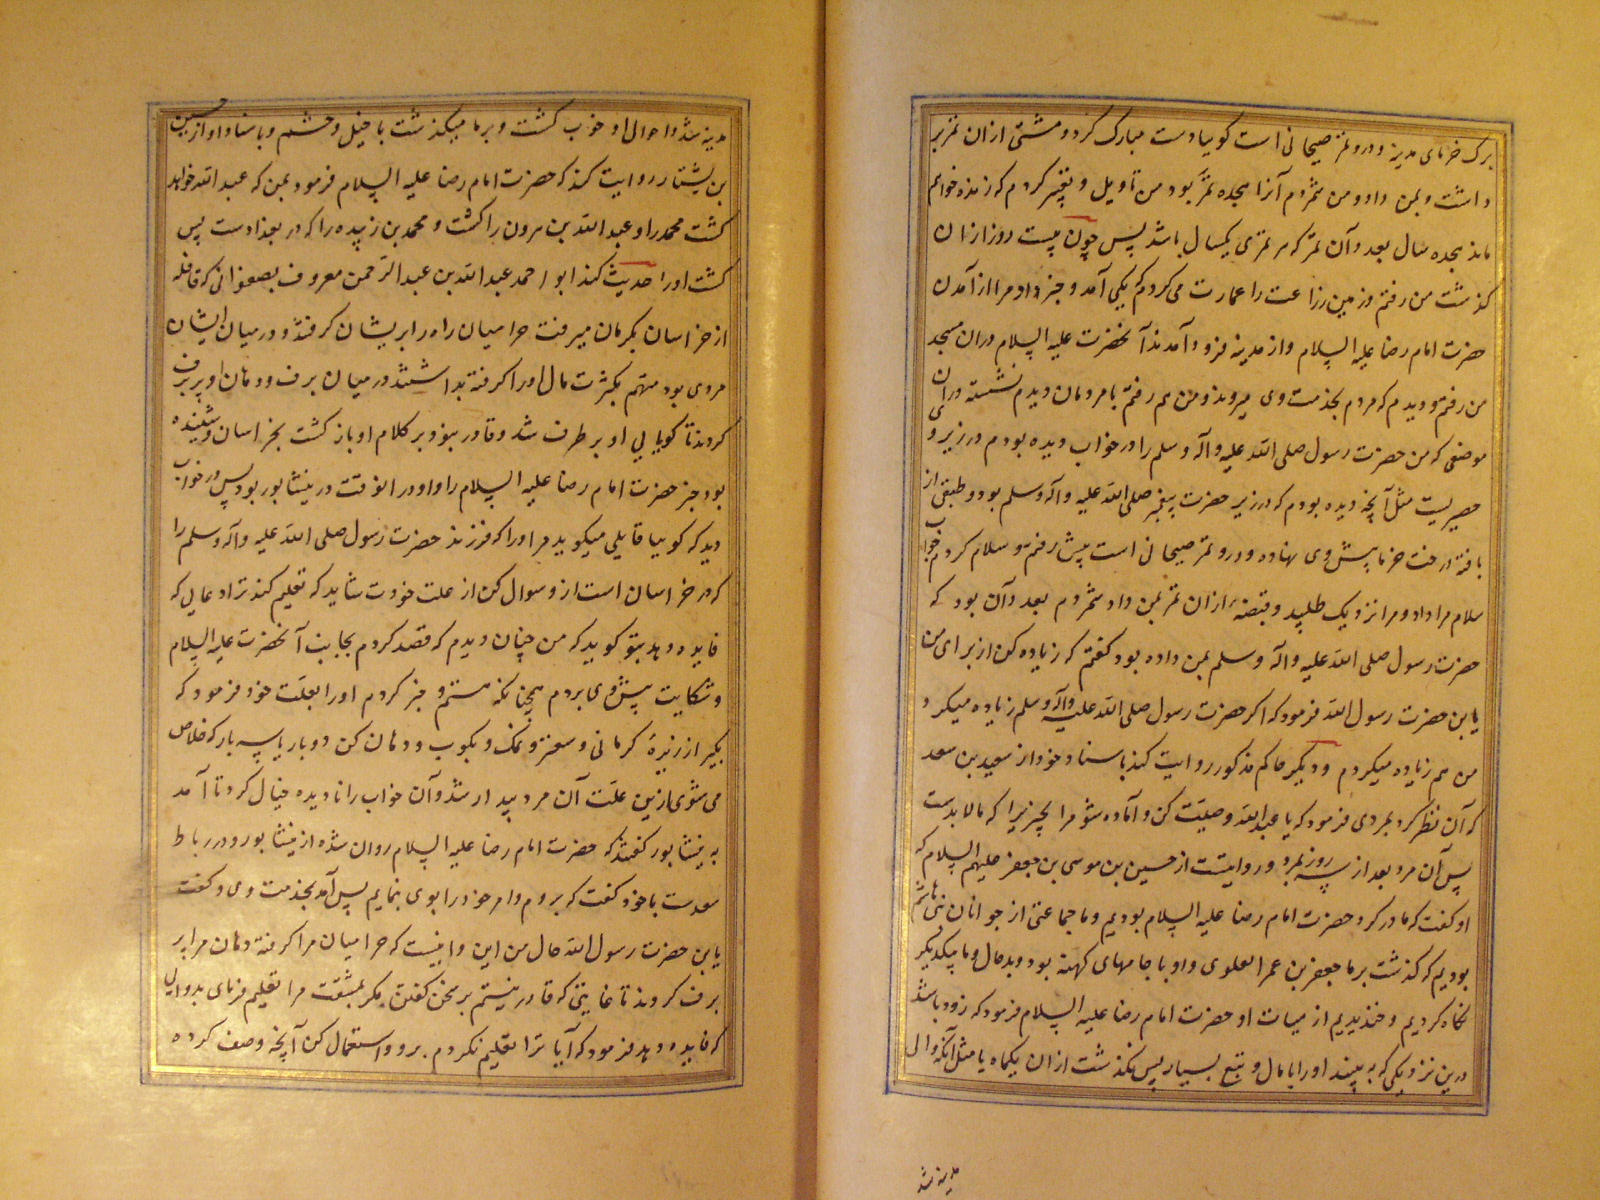 برک خرمای مدینه و درو تمر صیحانی است کوییا دست مبارک کرد و مشتی ازان تمر بر
داشت و بمن داد و من شمردم آنرا هجده تمر بود من تاویل و تعبیر کردم که زنده خواهم
ماند هجده سال بعد دآن تمر که هر تمری یکسال باشد پس چون بیست روز ازان
کذشت من رفتم در زمین زراعت را عمارت می کردم که یکی آمد و خبر داد مرا از آمدن
حضرت امام رضا علیه السلام و از مدینه فرود آمدند آنحضرت علیه السلام دران مسجد
من رفتم و دیدم که مردم بخدمت وی میروند و من هم رفتم با مردمان دیدم نشسته دران
موضعی که من حضرت رسول صلی الله علیه وآله وسلم را در خواب دیده بودم و در زیر وی
حصیریست مثل آنچه دیده بودم که در زیر حضرت پیغمبر صلی الله علیه وآله وسلم بود و طبقی از
بافته درخت خرما پیش وی نهاده و درو تمر صیحانی است پیش رفتم و سلام کردم جواب
سلام مرا داد و مرا نزدیک طلبید و قبضهٔ ازان تمر بمن داد شمردم بعدد آن بود که
حضرت رسول صلی الله علیه وآله وسلم بمن داده بود کفتم که زیاده کن از برای من
یابن حضرت رسول الله فرمود که اکر حضرت رسول صلی الله علیه وآله وسلم زیاده میکرد
من هم زیاده میکردم و دیکر حاکم مذکور روایت کند باسناد خود از سعید بن سعد
که آن نظر کرد بمردی فرمود که یا عبدالله وصیت کن و آماده شو مرا بچیزیرا که مالابدست
پس آن مرد بعد از سه روز بمرد و روایتست از حسین بن موسی بن جعفر علیهم السلام که
او کفت که ما در کرد حضرت امام رضا علیه السلام بودیم و ما جماعتی از جوانان بنی هاشم
بودیم که کذشت بر ما جعفر بن عمر العلوی و او با جامهای کهنه بود و بدحال و ما بیکدیکر
نکاه کردیم و خندیدیم از هیات او حضرت امام رضا علیه السلام فرمود که زود باشد
درین نزدیکی که به بینید او را با مال و تبع بسیار پس نکذشت ازان یکماه یا مثل آنکه والی
مدینه شد
مدینه شد و احوال او خوب کشت و بر ما میکذشت با خیل و حشم و باسناد او از حسین
بن بشار روایت کند که حضرت امام رضا علیه السلام فرمود بمن که عبدالله خواهد
کشت محمد را و عبدالله بن هرون را کشت و محمد بن زبیده را که در بغدادست پس
کشت او را حدیث کند ابو احمد عبدالله بن عبدالرحمن معروف بصفوانی که قافله
از خراسان بکرمان میرفت حرامیان راه را بریشان کرفتند و درمیان ایشان
مردی بود متهم بکثرت مال او را کرفته بداشتند در میان برف و دهان او پر برف
کردند تا کویایی او بر طرف شد و قادر نبود بر کلام او باز کشت بخراسان و شنیده
بود خبر حضرت امام رضا علیه السلام را و او در انوقت در نیشابور بود پس در خواب
دید که کوییا قایلی میکوید مر او را که فرزند حضرت رسول صلی الله علیه وآله وسلم را
که در خراسان است ازو سوال کن از علت خودت شاید که تعلیم کند ترا دعایی که
فایده دهد بتو کوید که من چنان دیدم که قصد کردم بجانب آنحضرت علیه السلام
و شکایت پیش وی بردم همچنانکه هستم و خبر کردم او را بعلت خود فرمود که
بکیر از زیرهٔ کرمانی و سعتر و نمک و بکوب و در دهان کن دو بار یا سه بار که خلاص
می شوی ازین علت آن مرد بیدار شد و آن خواب را نادیده خیال کرد تا آمد
به نیشابور کفتند که حضرت امام رضا علیه السلام روان شده از نیشابور و در رباط
سعدست با خود کفت که بروم و امر خود را بوی بنمایم پس آمد بخدمت وی و کفت
یابن حضرت رسول الله حال من این و اینست که حرامیان مرا کرفته دهان مرا پر
برف کردند تا غایتی که قادر نیستم بر سخن کفتن مکر بمشقت مرا تعلیم فرمای بدوایی
که فایده دهد فرمود که آیا ترا تعلیم نکردم برو و استعمال کن آنچه وصف کرده